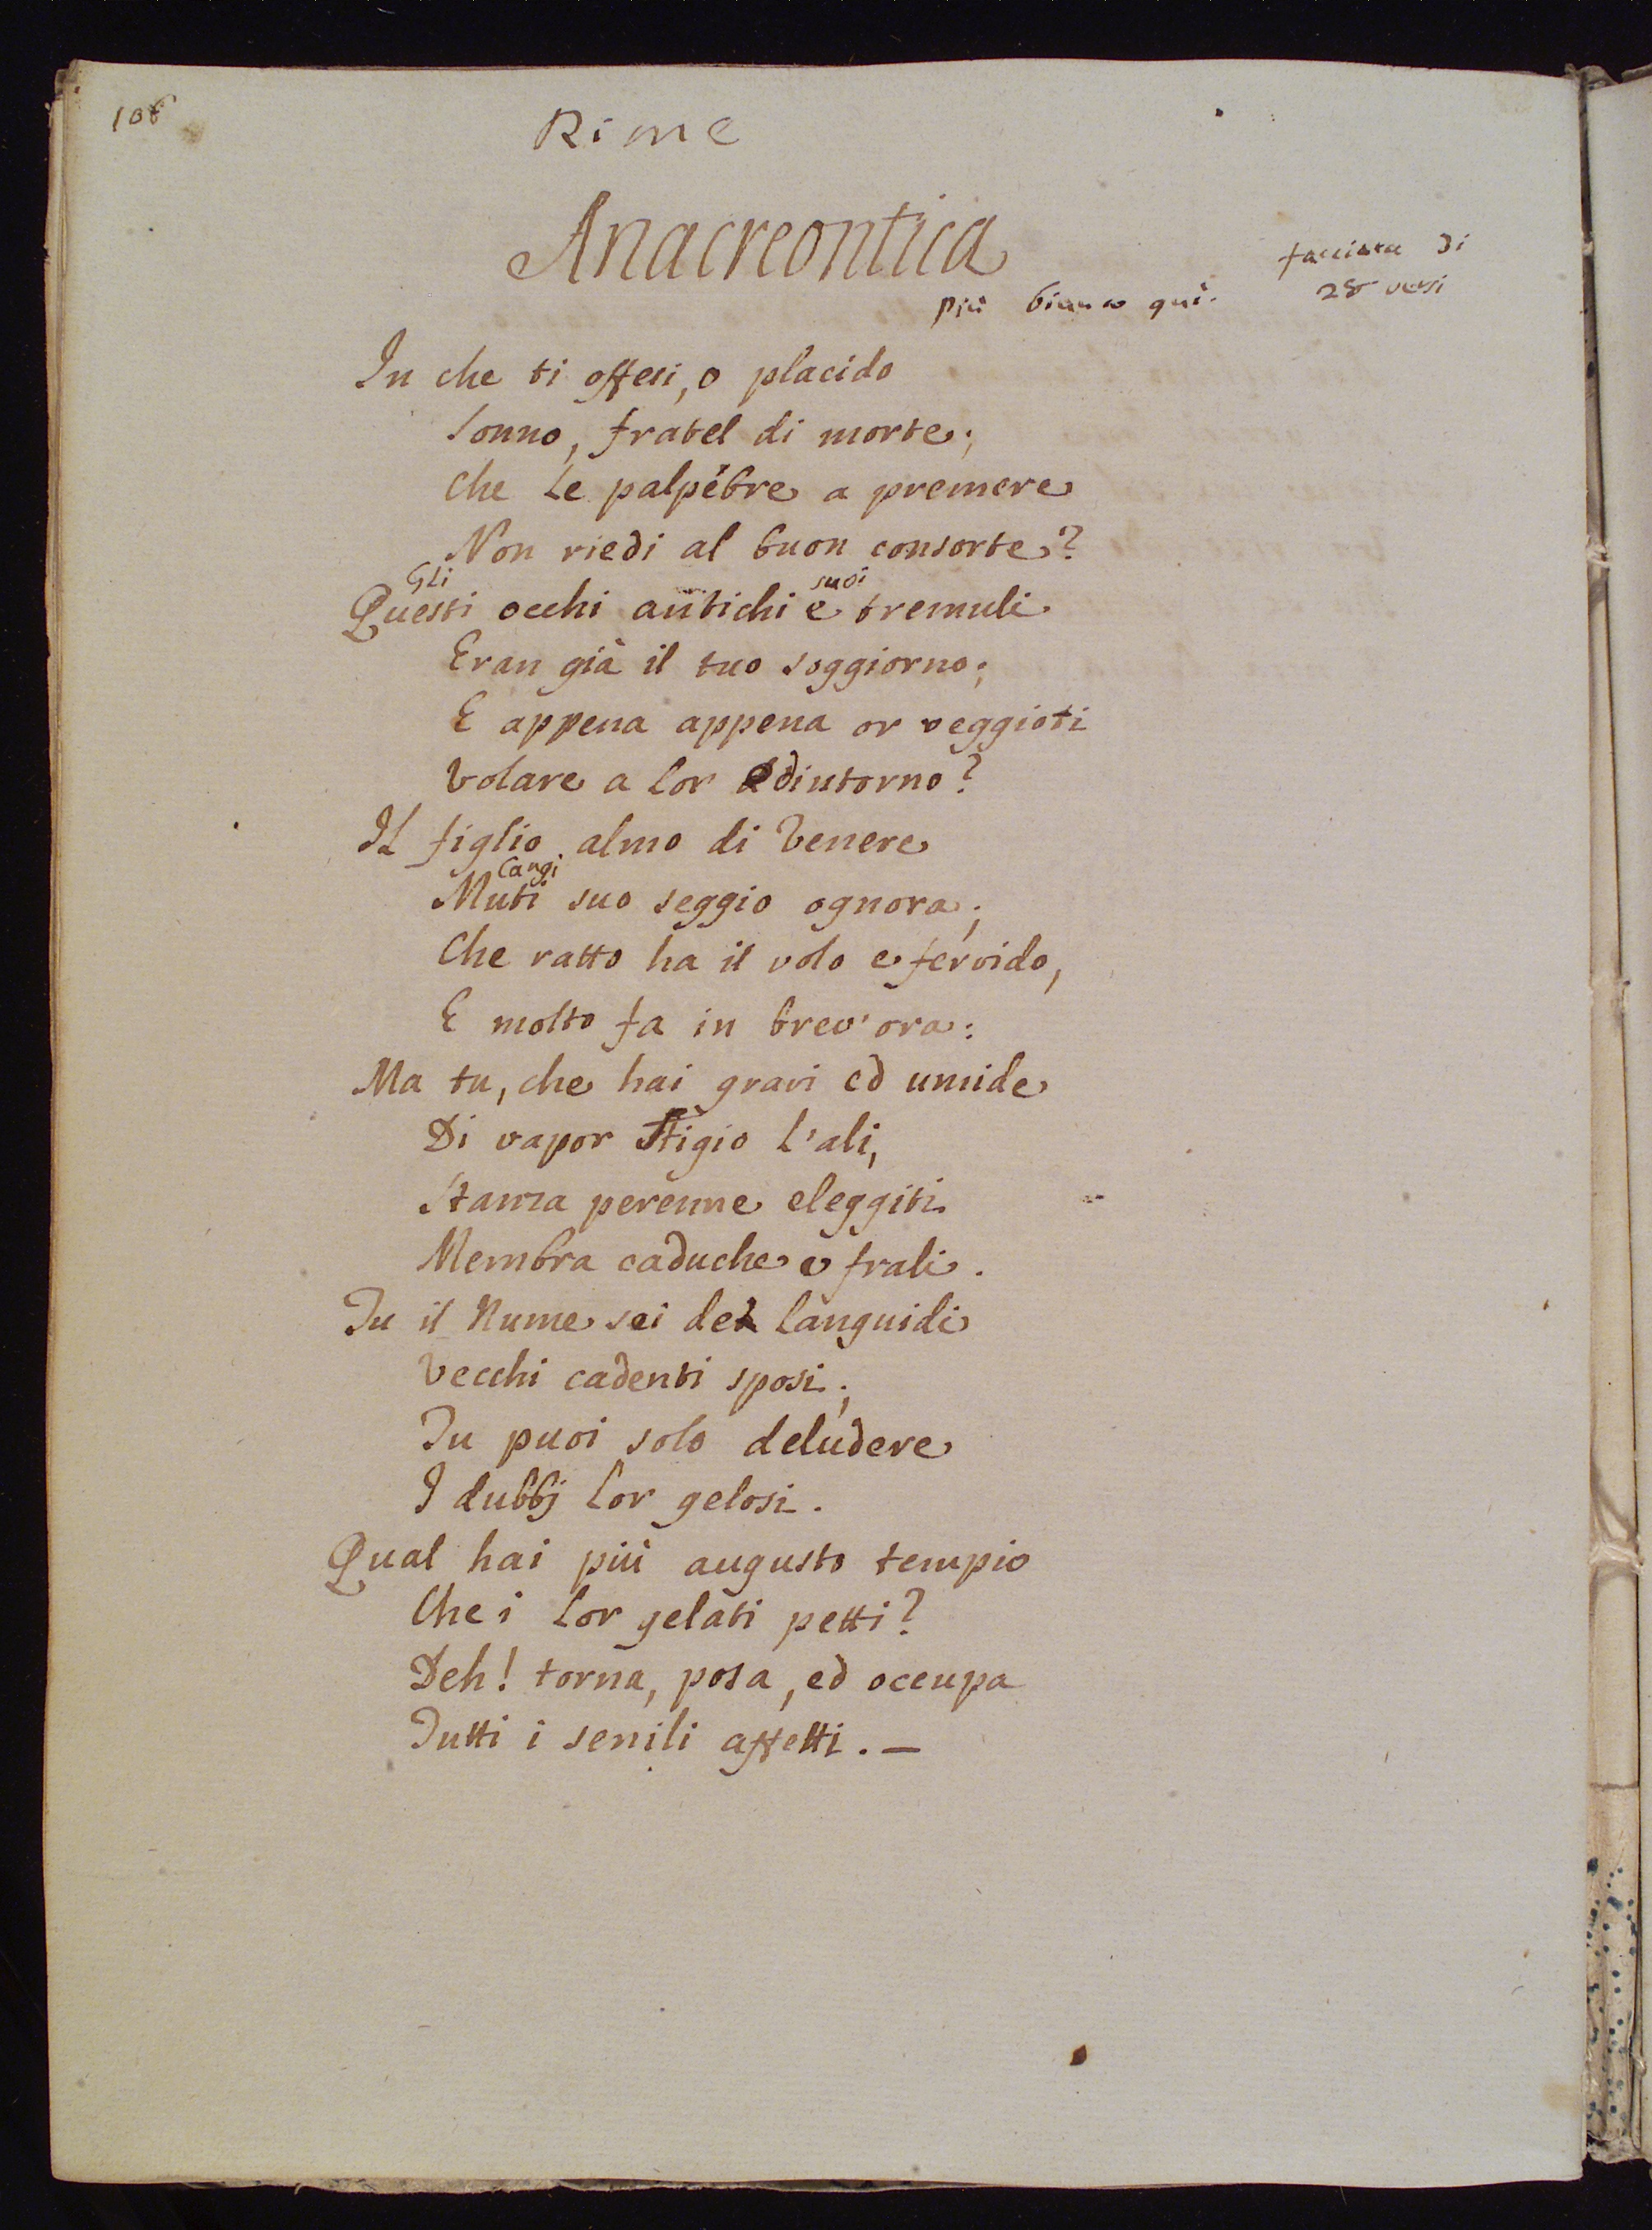 106
Rime
Anacreontica
facciata di
28 versi
più bianco quì.
In che ti offesi, o placido
Sonno, fratel di morte;
Che le palpébre a premere
Non riedi al buon consorte?
Gli suoi
Questi occhi antichi e tremuli
Eran già il tuo soggiorno;
E appena appena or veggioti
Volare a lor dintorno?
Il figlio almo di Venere
Cangi
Muti suo seggio ognora;
Che ratto ha il volo e fervido,
E molto fa in brev'ora:
Ma tu, che hai gravi ed umide
Di vapor Stigio l'ali,
Stanza perenne eleggiti
Membra caduche e frali.
Tu il Nume sei de' languidi
Vecchi cadenti sposi;
Tu puoi solo deludere
I dubbj lor gelosi.
Qual hai più augusto tempio
Che i lor gelati petti?
Deh! torna, posa, ed occupa
Tutti i senili affetti. —